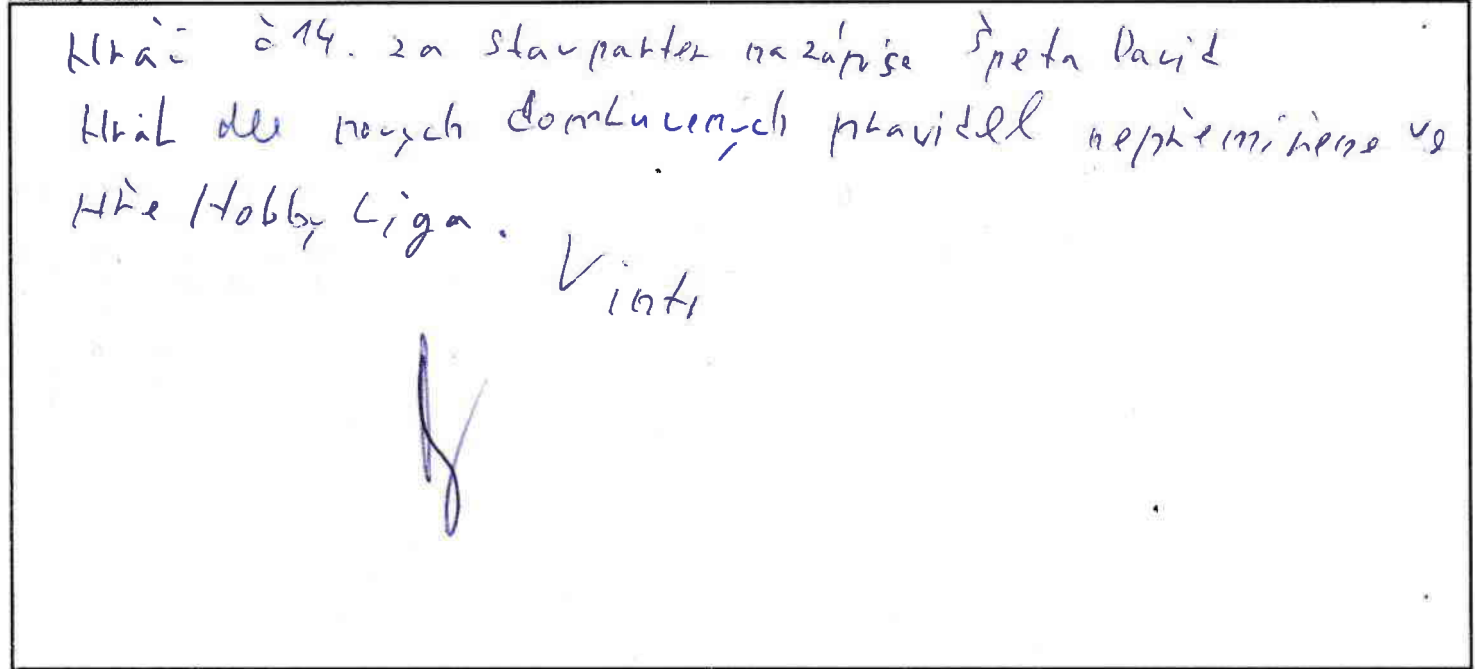 Hráč č 14. za stavparten na zápise Špeta David
Hrál dle nových domluvených pravidel ve
Hře Hobby Liga.